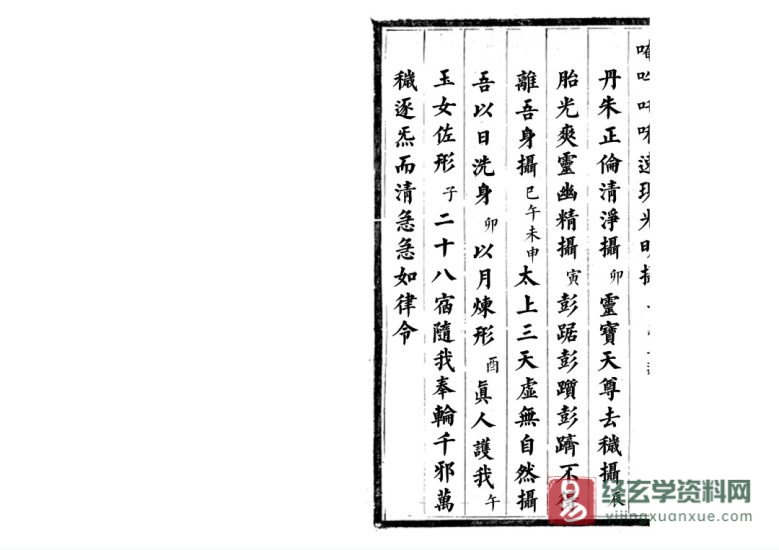 速現光明攝
丹朱正倫清淨攝卯靈寶天尊去穢攝辰
胎光爽靈幽精攝寅彭踞彭躓彭躋不得
離吾身攝巳午未申太上三天虛無自然攝
吾以日洗身卯以月煉形酉眞人護我午
玉女佐形子二十八宿隨我奉輪千邪萬
穢逐炁而清急急如律令
易
经玄学资料网
yijingxuanxue.com